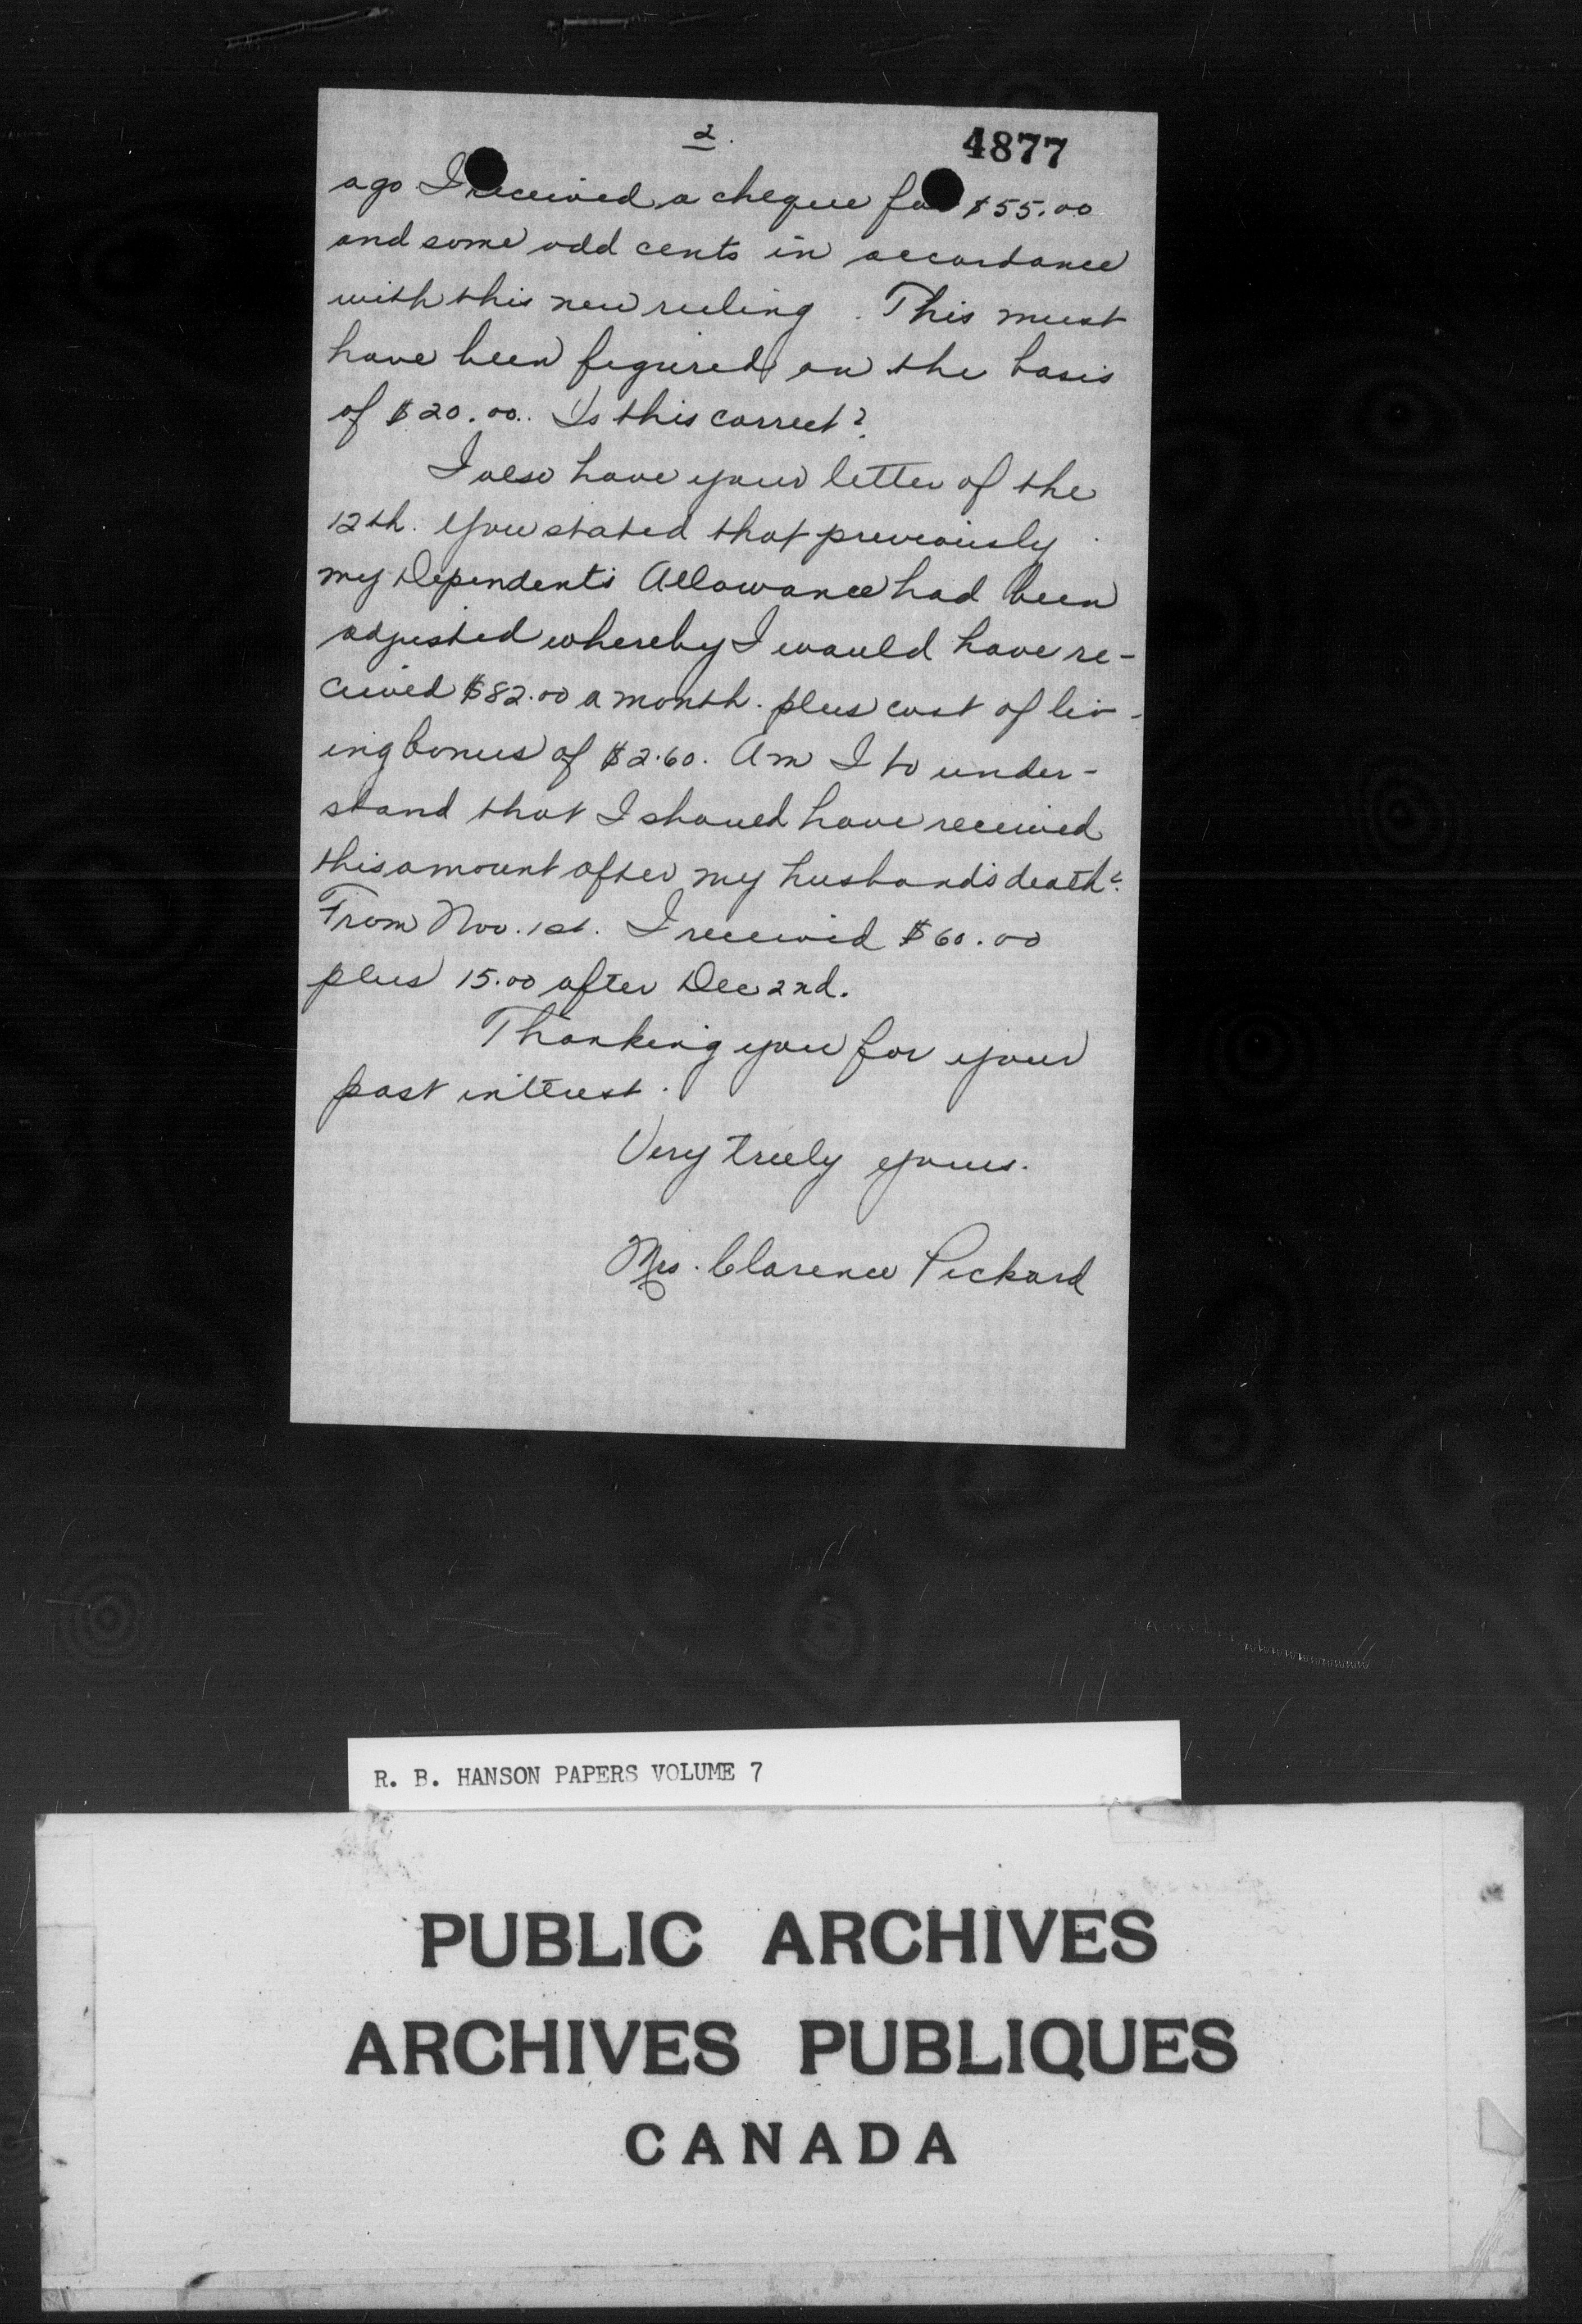 2.
4877
ago I received a cheque for $55.00
and some odd cents in accordance
with this new ruling. This must
have been figured on the basis
of $20.00. Is this correct?
I also have your letter of the
12th. You stated that previously
my Dependent's Allowance had been
adjusted whereby I would have re-
ceived $82.00 a month. plus cost of liv-
ing bonus of $2.60. Am I to under-
stand that I should have received
this amount after my husband's death?
From Nov. 1st. I received $60.00
plus 15.00 after Dec 2nd.
Thanking you for your
past interest.
Very truly yours.
Mrs. Clarence Pickard
R. B. HANSON PAPERS VOLUME 7
PUBLIC ARCHIVES
ARCHIVES PUBLIQUES
CANADA